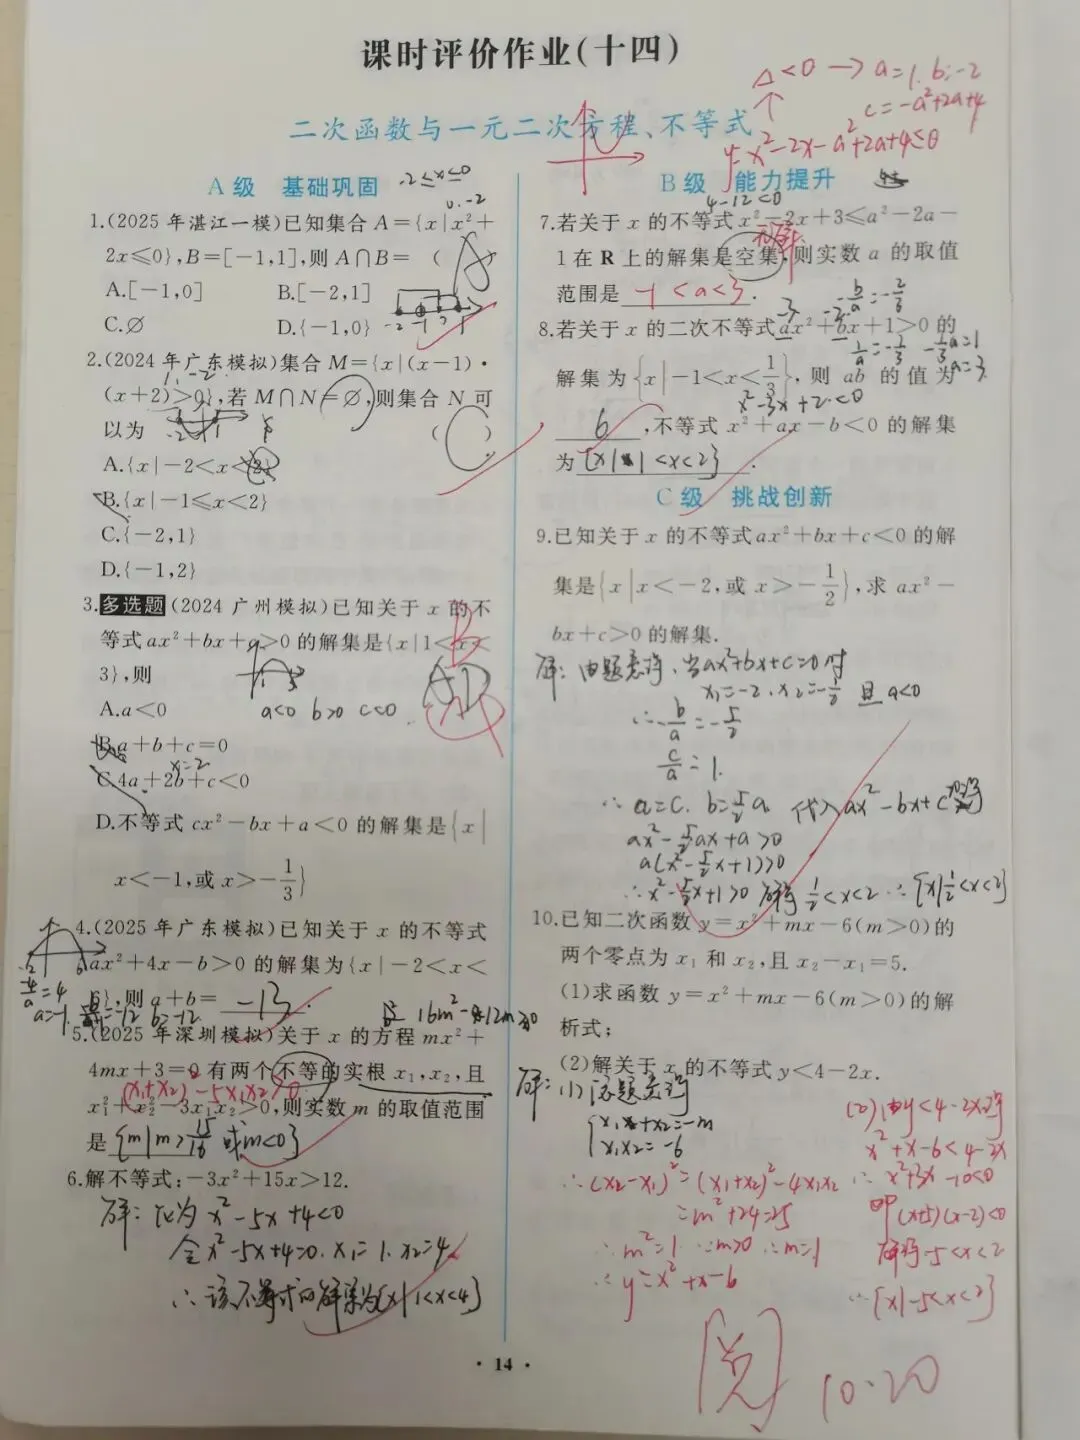 课时评价作业(十四)
二次函数与一元二次方程、不等式
△<0 → a=1. b=-2
c=-a²+2a+4
y=x²-2x-a²+2a+4≤0
A级 基础巩固
-2≤x≤0
0.-2
1.(2025年湛江一模)已知集合A={x|x²+
2x≤0},B=[-1,1],则A∩B= ( A )
A.[-1,0] B.[-2,1]
C.∅ D.{-1,0}
-2 -1 0 1
2.(2024年广东模拟)集合M={x|(x-1)·
1. -2
(x+2)>0},若M∩N=∅,则集合N可
以为 ( )
-2 1
A.{x|-2<x<2}
B.{x|-1≤x<2}
C.{-2,1}
D.{-1,2}
3.多选题(2024广州模拟)已知关于x的不
等式ax²+bx+c>0的解集是{x|1<x<
3},则
1 3
AD
B
a<0 b>0 c<0
A.a<0
B.a+b+c=0
x=2
C.4a+2b+c<0
D.不等式cx²-bx+a<0的解集是{x|
x<-1,或x>-1/3}
4.(2025年广东模拟)已知关于x的不等式
ax²+4x-b>0的解集为{x|-2<x<
6},则a+b= -13 .
-2 6
-4/a=4
a=-1. =-12 b=-12
且 16m²-12m>0
5.(2025年深圳模拟)关于x的方程mx²+
4mx+3=0有两个不等的实根x₁,x₂,且
(x₁+x₂)²-5x₁x₂>0
x₁²+x₂²-3x₁x₂>0,则实数m的取值范围
是 {m|m>15/16 或m<0}
6.解不等式:-3x²+15x>12.
解:化为 x²-5x+4<0
令x²-5x+4=0. x₁=1. x₂=4
∴该不等式的解集为{x|1<x<4}
B级 能力提升
4-12<0
7.若关于x的不等式x²-2x+3≤a²-2a-
1在R上的解集是空集,则实数a的取值
无解
范围是 -1<a<3 .
-b/a=-2/3
-3 -2
8.若关于x的二次不等式ax²+bx+1>0的
1/a=-1/3 -1/3a=1
a=-3
解集为{x|-1<x<1/3},则ab的值为
x²-3x+2<0
6 ,不等式x²+ax-b<0的解集
为 {x|1<x<2} .
C级 挑战创新
9.已知关于x的不等式ax²+bx+c<0的解
集是{x|x<-2,或x>-1/2},求ax²-
bx+c>0的解集.
解:由题意得,当ax²+bx+c=0时
x₁=-2. x₂=-1/2 且a<0
∴-b/a=-5/2
c/a=1.
∴a=c. b=5/2a 代入ax²-bx+c 得
ax²-5/2ax+a>0
a(x²-5/2x+1)>0
∴x²-5/2x+1>0 解得1/2<x<2 ∴{x|1/2<x<2}
10.已知二次函数y=x²+mx-6(m>0)的
两个零点为x₁和x₂,且x₂-x₁=5.
(1)求函数y=x²+mx-6(m>0)的解
析式;
(2)解关于x的不等式y<4-2x.
解:(1)由题意得
{x₁+x₂=-m
x₁x₂=-6
∴(x₂-x₁)²=(x₁+x₂)²-4x₁x₂
=m²+24=25
∴m²=1 ∵m>0 ∴m=1
∴y=x²+x-6
(2)由y<4-2x得
x²+x-6<4-2x
∴x²+3x-10<0
即(x+5)(x-2)<0
解得-5<x<2
∴{x|-5<x<2}
阅 10.20
· 14 ·